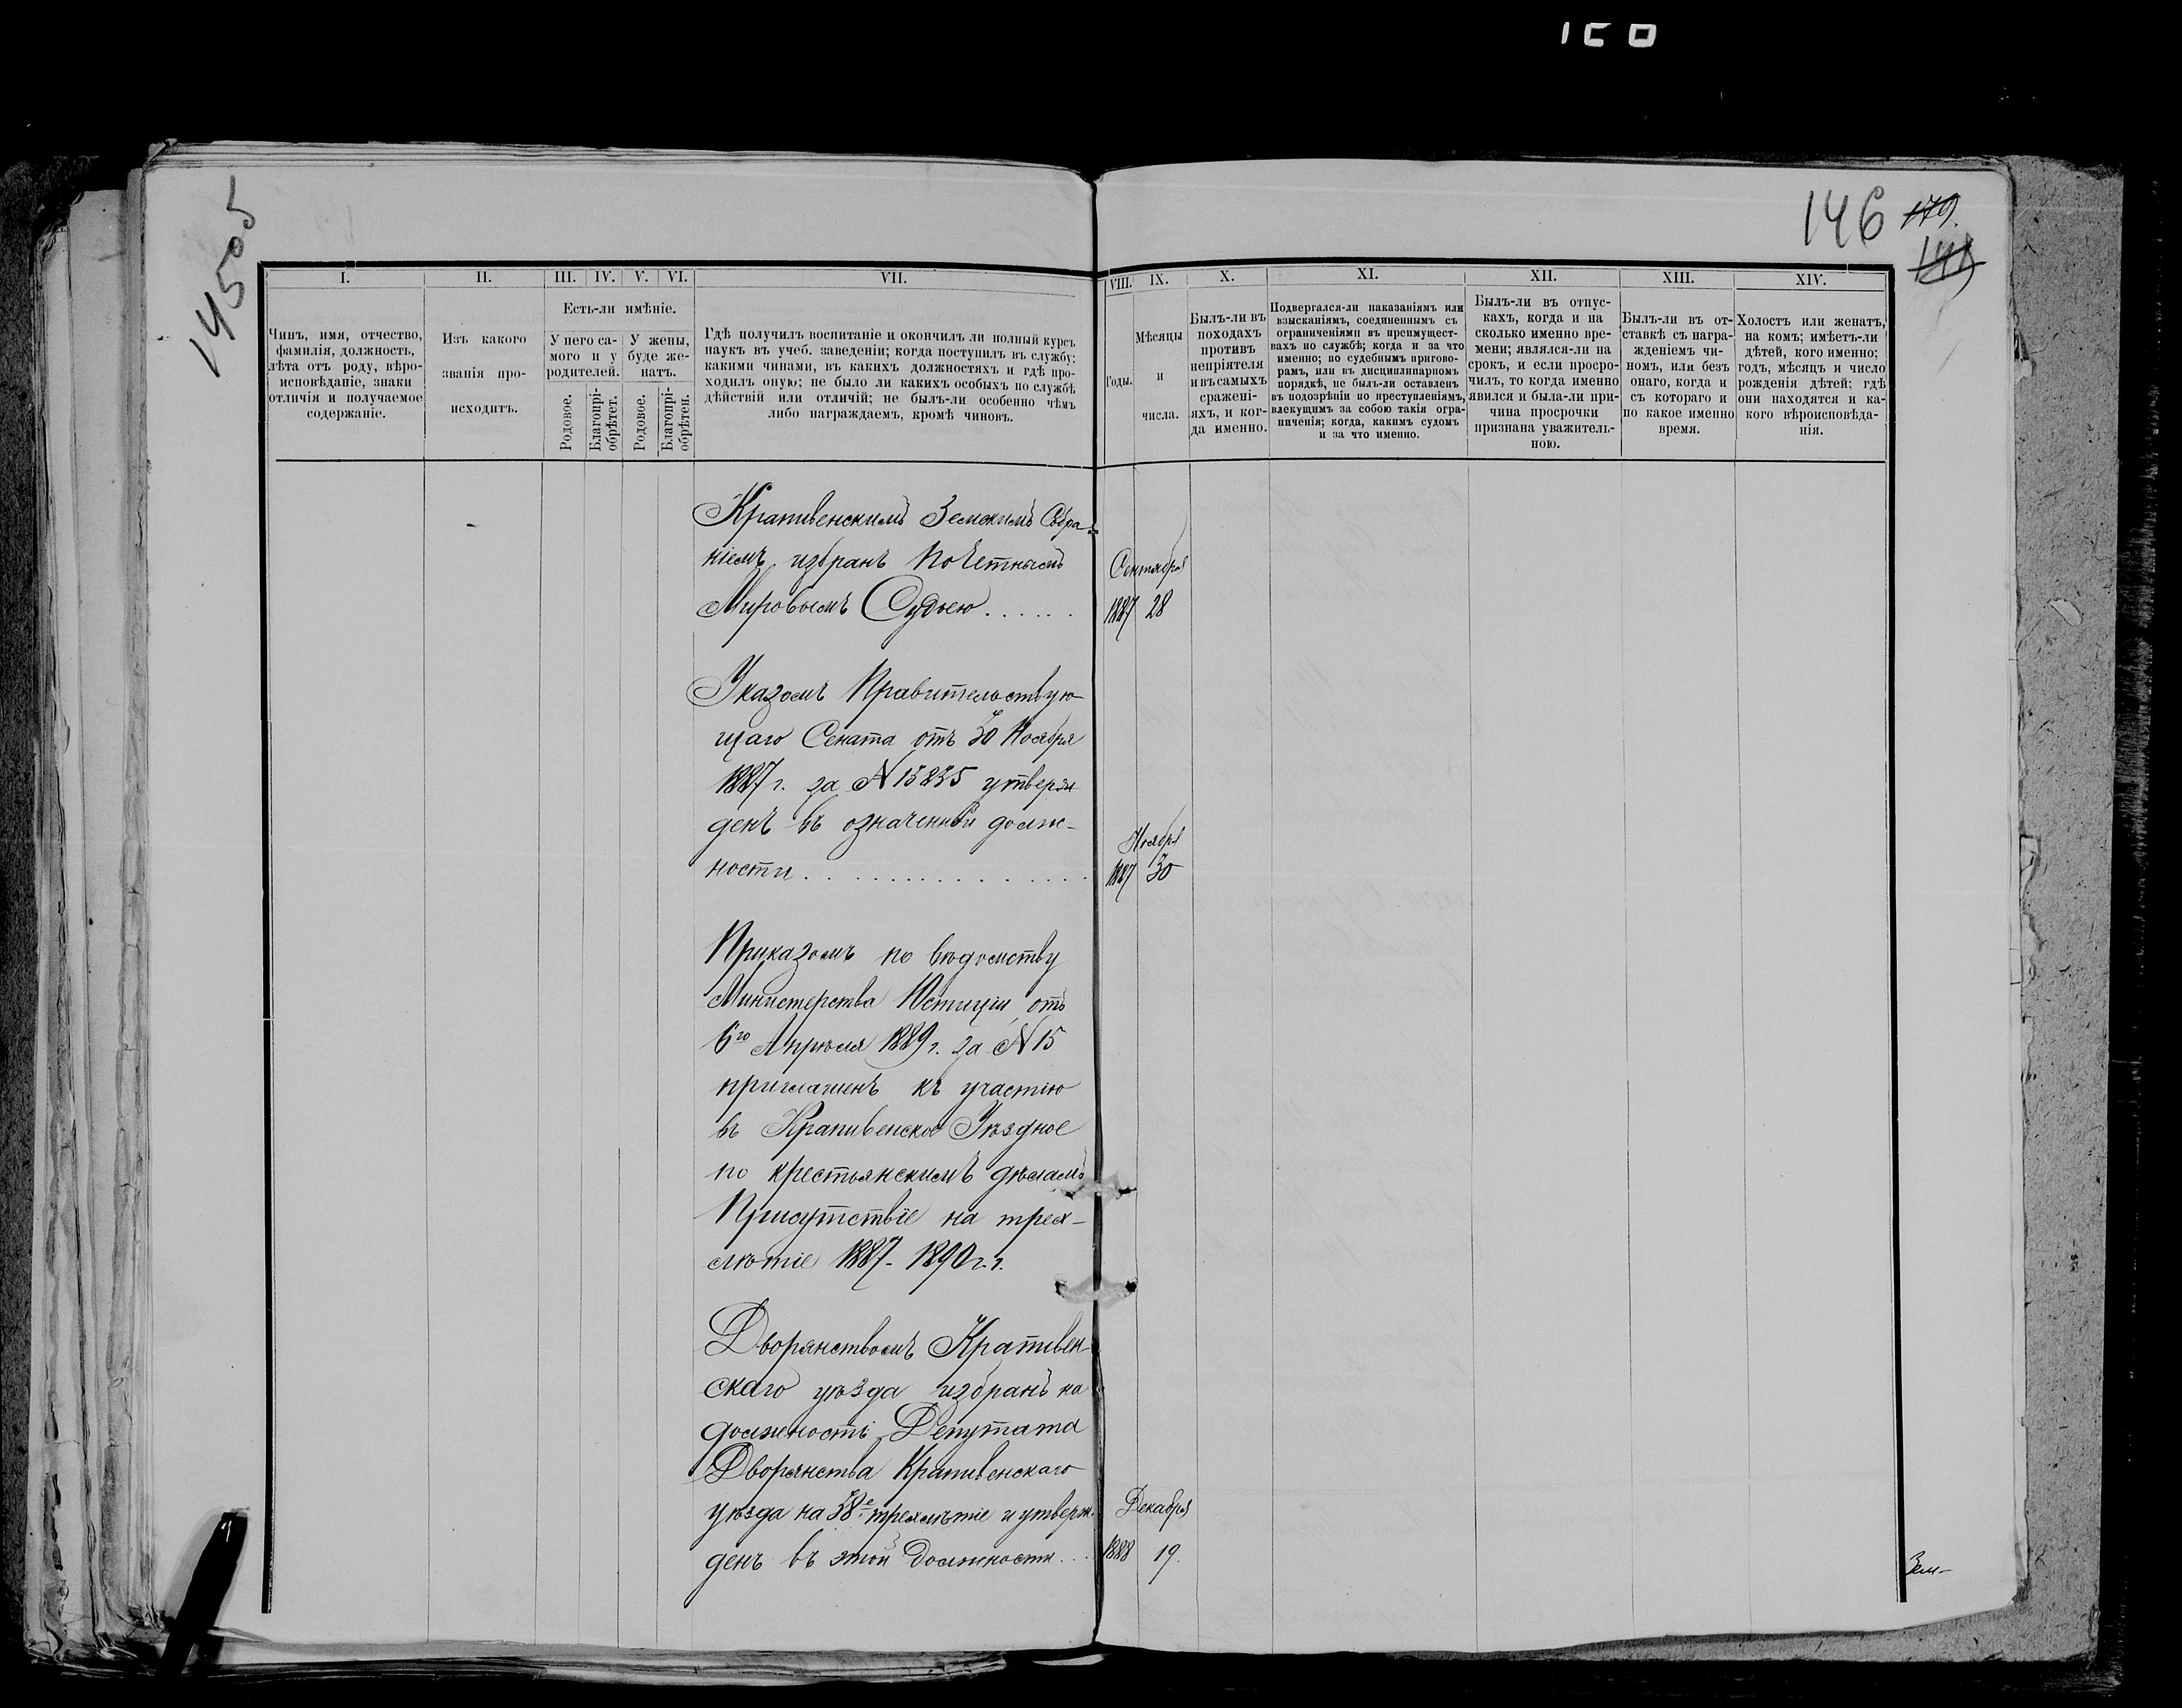 145об
146 179.
I. II. III. IV. V. VI. VII. VIII. IX. X. XI. XII. XIII. XIV.
Чинъ, имя, отчество,
фамилія, должность,
лѣта отъ роду, вѣро-
исповѣданіе, знаки
отличія и получаемое
содержаніе.
Изъ какого
званія про-
исходитъ.
Есть-ли имѣніе.
У него са-
мого и у
родителей.
У жены,
буде же-
натъ.
Родовое.
Благопрі-
обрѣтет.
Родовое.
Благопрі-
обрѣтен.
Гдѣ получилъ воспитаніе и окончилъ ли полный курсъ
наукъ въ учеб. заведеніи; когда поступилъ въ службу;
какими чинами, въ какихъ должностяхъ и гдѣ про-
ходилъ оную; не было ли какихъ особыхъ по службѣ
дѣйствій или отличій; не былъ-ли особенно чѣмъ
либо награждаемъ, кромѣ чиновъ.
Годы.
Мѣсяцы
и
числа.
Былъ-ли въ
походахъ
противъ
непріятеля
и въ самыхъ
сражені-
яхъ, и ког-
да именно.
Подвергался-ли наказаніямъ или
взысканіямъ, соединеннымъ съ
ограниченіями въ преимущест-
вахъ по службѣ; когда и за что
именно; по судебнымъ пригово-
рамъ, или въ дисциплинарномъ
порядкѣ, не былъ-ли оставленъ
въ подозрѣніи по преступленіямъ,
влекущимъ за собою такія огра-
ниченія; когда, какимъ судомъ
и за что именно.
Былъ-ли въ отпус-
кахъ, когда и на
сколько именно вре-
мени; являлся-ли на
срокъ, и если просро-
чилъ, то когда именно
явился и была-ли при-
чина просрочки
признана уважитель-
ною.
Былъ-ли въ от-
ставкѣ съ награ-
жденіемъ чи-
номъ, или безъ
онаго, когда и
съ котораго и
по какое именно
время.
Холостъ или женатъ,
на комъ; имѣетъ-ли
дѣтей, кого именно;
годъ, мѣсяцъ и число
рожденія дѣтей; гдѣ
они находятся и ка-
кого вѣроисповѣда-
нія.
Крапивенскимъ Земскимъ Собра-
ніемъ избранъ Почетнымъ
Сентября
Мировымъ Судьею . . . . . . 1887 28
Указомъ Правительствую-
щаго Сената отъ 30 Ноября
1887 г. за № 15835 утверж-
денъ въ означенной долж-
Ноября
ности . . . . . . . . . . . . . . . 1887 30
Приказомъ по вѣдомству
Министерства Юстиціи отъ
6го Апрѣля 1889 г. за № 15
приглашенъ къ участію
въ Крапивенское Уѣздное
по крестьянскимъ дѣламъ
Присутствіе на трех-
лѣтіе 1887-1890 г.г.
Дворянствомъ Крапивен-
скаго уѣзда избранъ на
должность Депутата
Дворянства Крапивенскаго
уѣзда на 38е трехлѣтіе и утверж-
Декабря
денъ въ этой должности . . . 1888 19.
Зем-